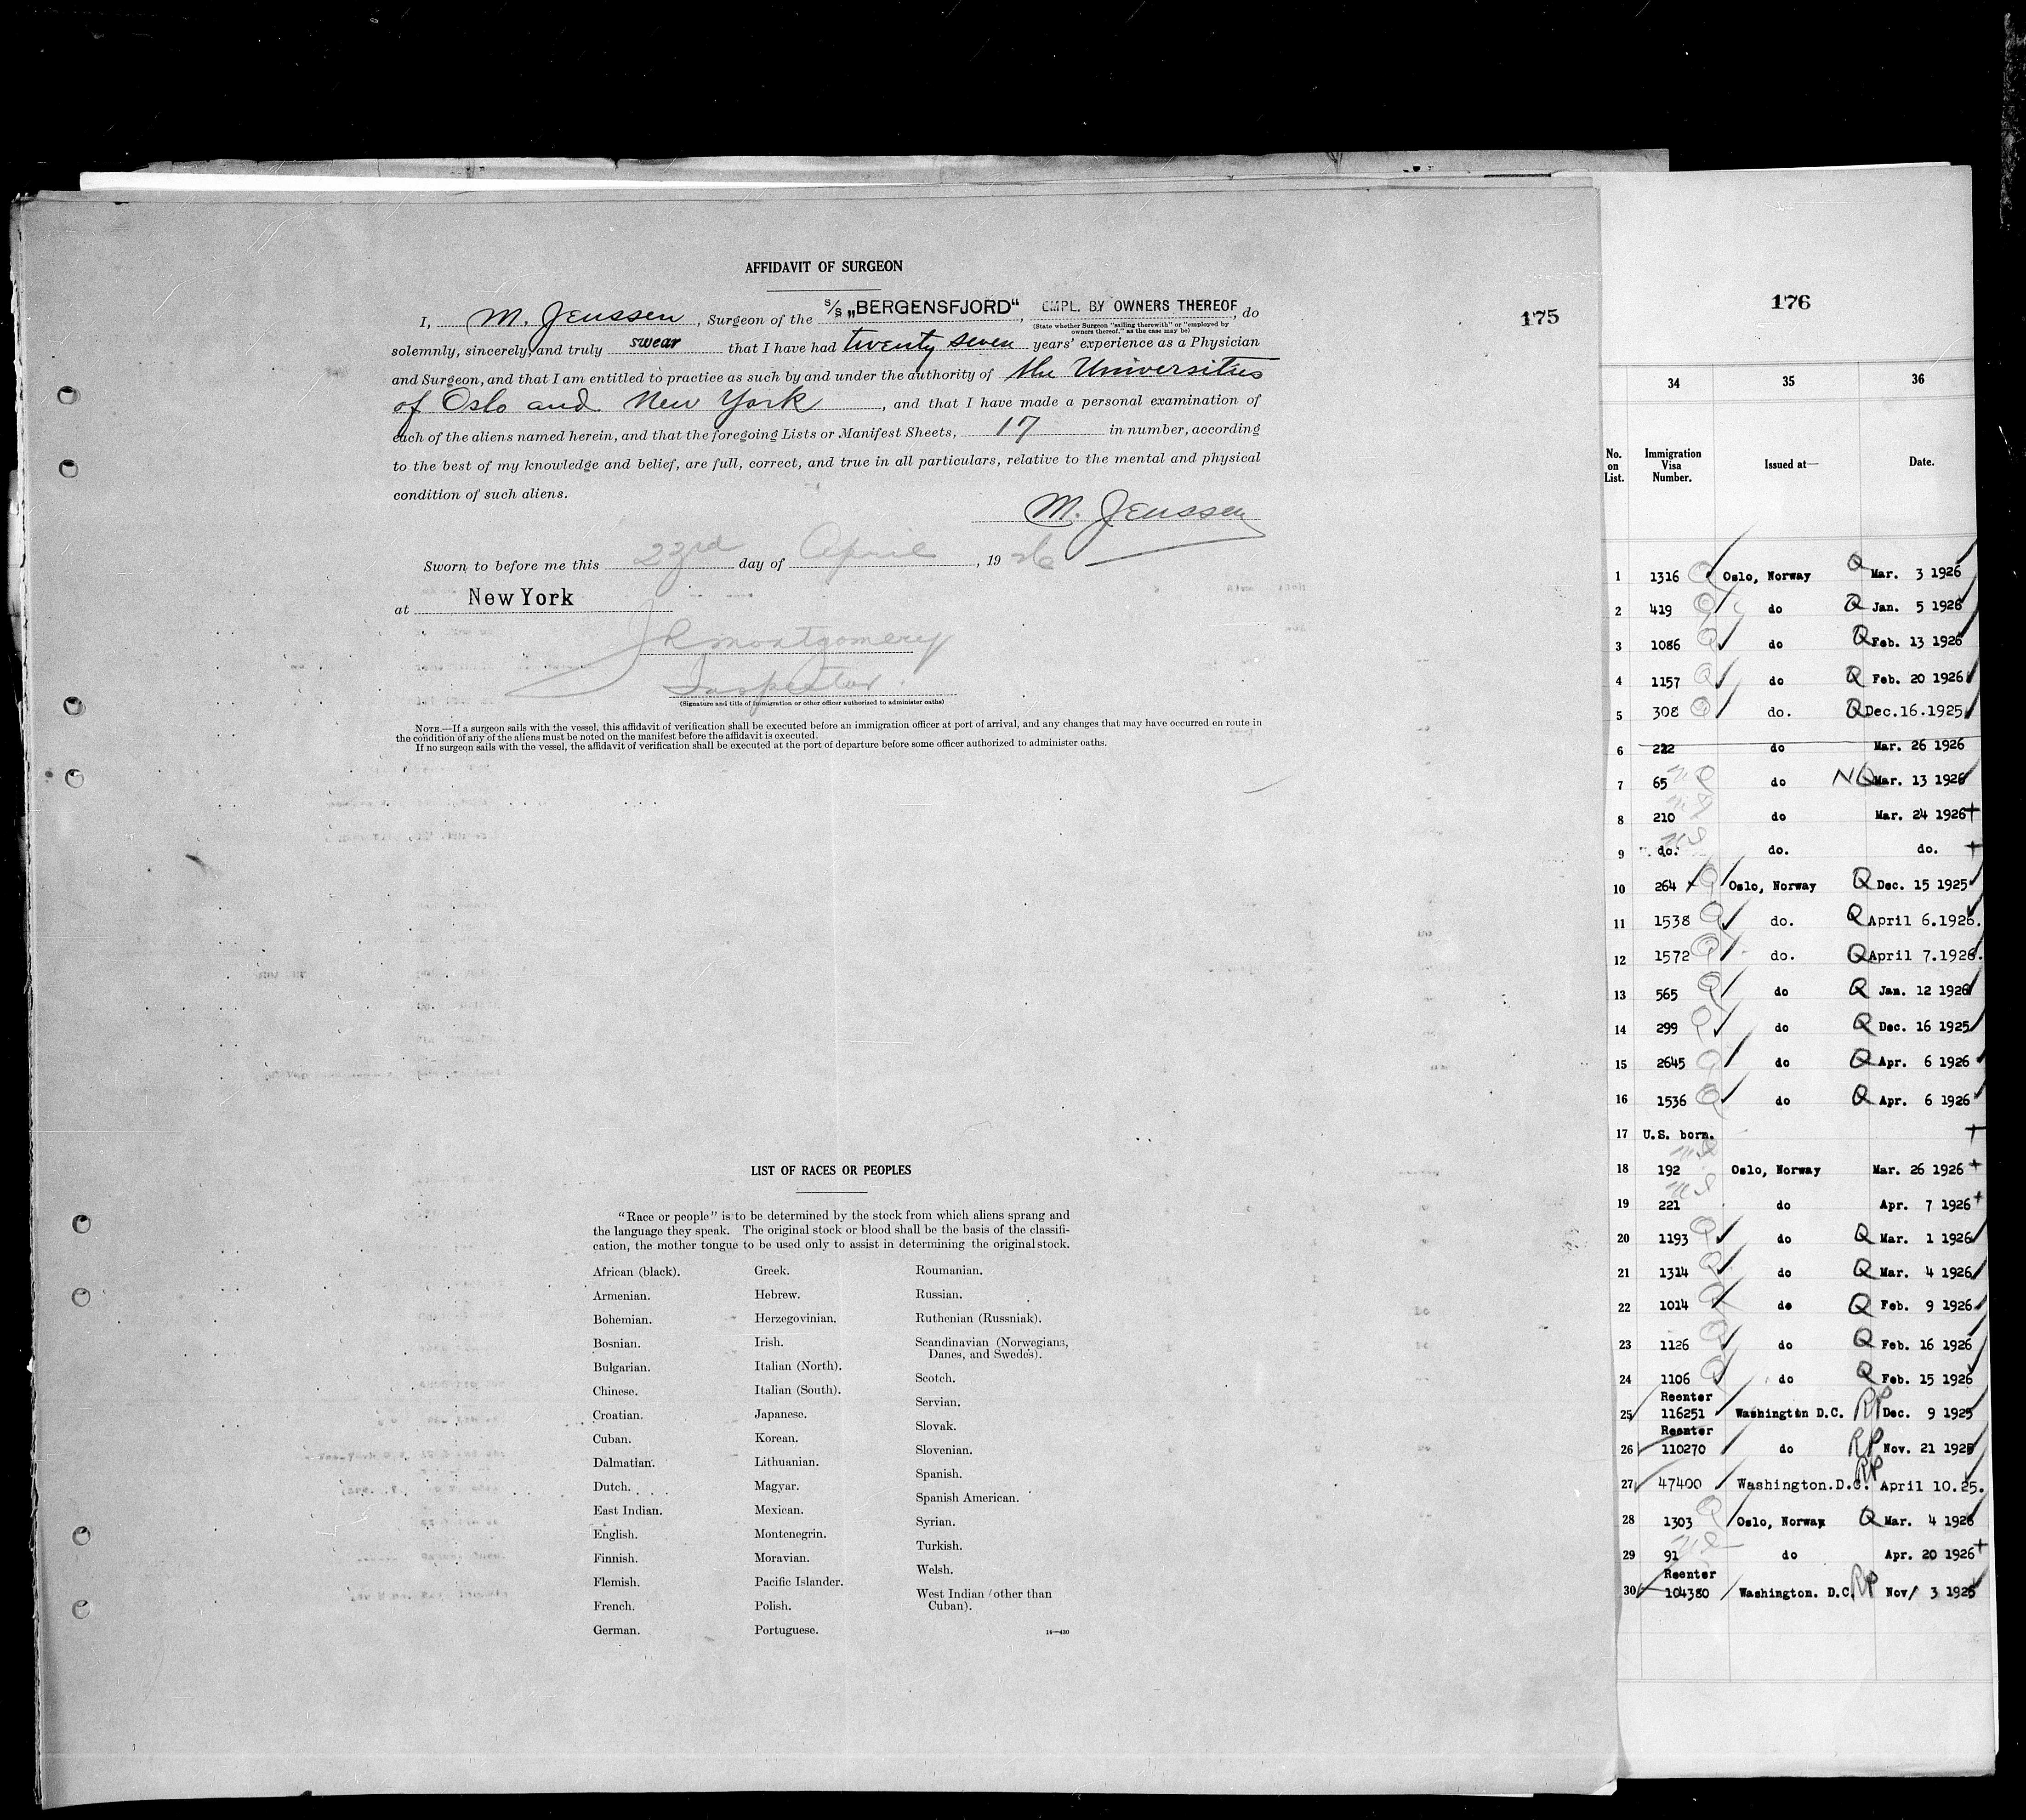 AFFIDAVIT OF SURGEON
I, M. Jenssen, Surgeon of the S/S „BERGENSFJORD“, EMPL. BY OWNERS THEREOF, do
(State whether Surgeon "sailing therewith" or "employed by
owners thereof," as the case may be)
solemnly, sincerely, and truly swear that I have had twenty seven years' experience as a Physician
and Surgeon, and that I am entitled to practice as such by and under the authority of the Universities
of Oslo and New York, and that I have made a personal examination of
each of the aliens named herein, and that the foregoing Lists or Manifest Sheets, 17 in number, according
to the best of my knowledge and belief, are full, correct, and true in all particulars, relative to the mental and physical
condition of such aliens.
M. Jenssen
Sworn to before me this 23rd day of April, 1926
at New York
JR Montgomery
Inspector.
(Signature and title of immigration or other officer authorized to administer oaths)
NOTE.—If a surgeon sails with the vessel, this affidavit of verification shall be executed before an immigration officer at port of arrival, and any changes that may have occurred en route in
the condition of any of the aliens must be noted on the manifest before the affidavit is executed.
If no surgeon sails with the vessel, the affidavit of verification shall be executed at the port of departure before some officer authorized to administer oaths.
175
LIST OF RACES OR PEOPLES
"Race or people" is to be determined by the stock from which aliens sprang and
the language they speak. The original stock or blood shall be the basis of the classifi-
cation, the mother tongue to be used only to assist in determining the original stock.
African (black).
Armenian.
Bohemian.
Bosnian.
Bulgarian.
Chinese.
Croatian.
Cuban.
Dalmatian.
Dutch.
East Indian.
English.
Finnish.
Flemish.
French.
German.
Greek.
Hebrew.
Herzegovinian.
Irish.
Italian (North).
Italian (South).
Japanese.
Korean.
Lithuanian.
Magyar.
Mexican.
Montenegrin.
Moravian.
Pacific Islander.
Polish.
Portuguese.
Roumanian.
Russian.
Ruthenian (Russniak).
Scandinavian (Norwegians,
Danes, and Swedes).
Scotch.
Servian.
Slovak.
Slovenian.
Spanish.
Spanish American.
Syrian.
Turkish.
Welsh.
West Indian (other than
Cuban).
14—430
176
34 35 36
No. on List. Immigration Visa Number. Issued at— Date.
1 1316 Q Oslo, Norway Q Mar. 3 1926
2 419 Q do Q Jan. 5 1926
3 1086 Q do Q Feb. 13 1926
4 1157 Q do Q Feb. 20 1926
5 308 Q do. Q Dec.16.1925
6 222 do Mar. 26 1926
7 65 do NQ Mar. 13 1926
8 210 do Mar. 24 1926
9 do. do. do.
10 264 Q Oslo, Norway Q Dec. 15 1925
11 1538 Q do. Q April 6.1926.
12 1572 Q do. Q April 7.1926.
13 565 Q do Q Jan. 12 1926
14 299 Q do Q Dec. 16 1925
15 2645 Q do Q Apr. 6 1926
16 1536 Q do Q Apr. 6 1926
17 U.S. born.
18 192 Oslo, Norway Mar. 26 1926
19 221 do Apr. 7 1926
20 1193 Q do Q Mar. 1 1926
21 1314 Q do Q Mar. 4 1926
22 1014 Q do Q Feb. 9 1926
23 1126 Q do Q Feb. 16 1926
24 1106 Q do Q Feb. 15 1926
Reenter
25 116251 Washington D.C. RP Dec. 9 1925
Reenter
26 110270 do RP Nov. 21 1925
27 47400 Washington.D.C. RP April 10.25.
28 1303 Q Oslo, Norway Q Mar. 4 1926
29 91 do Apr. 20 1926
Reenter
30 104380 Washington. D.C. RP Nov/ 3 1925